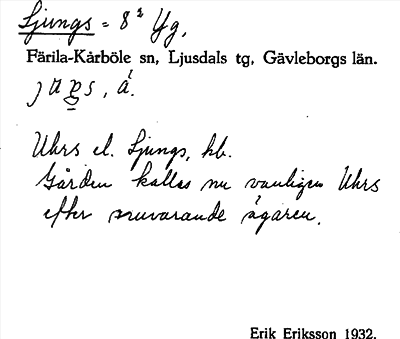 Ljungs = 8² Yg,
Färila-Kårböle sn, Ljusdals tg, Gävleborgs län.
á.
Uhrs el. Ljungs, hb.
Gården kallas nu vanligen Uhrs
efter nuvarande ägaren.
Erik Eriksson 1932.